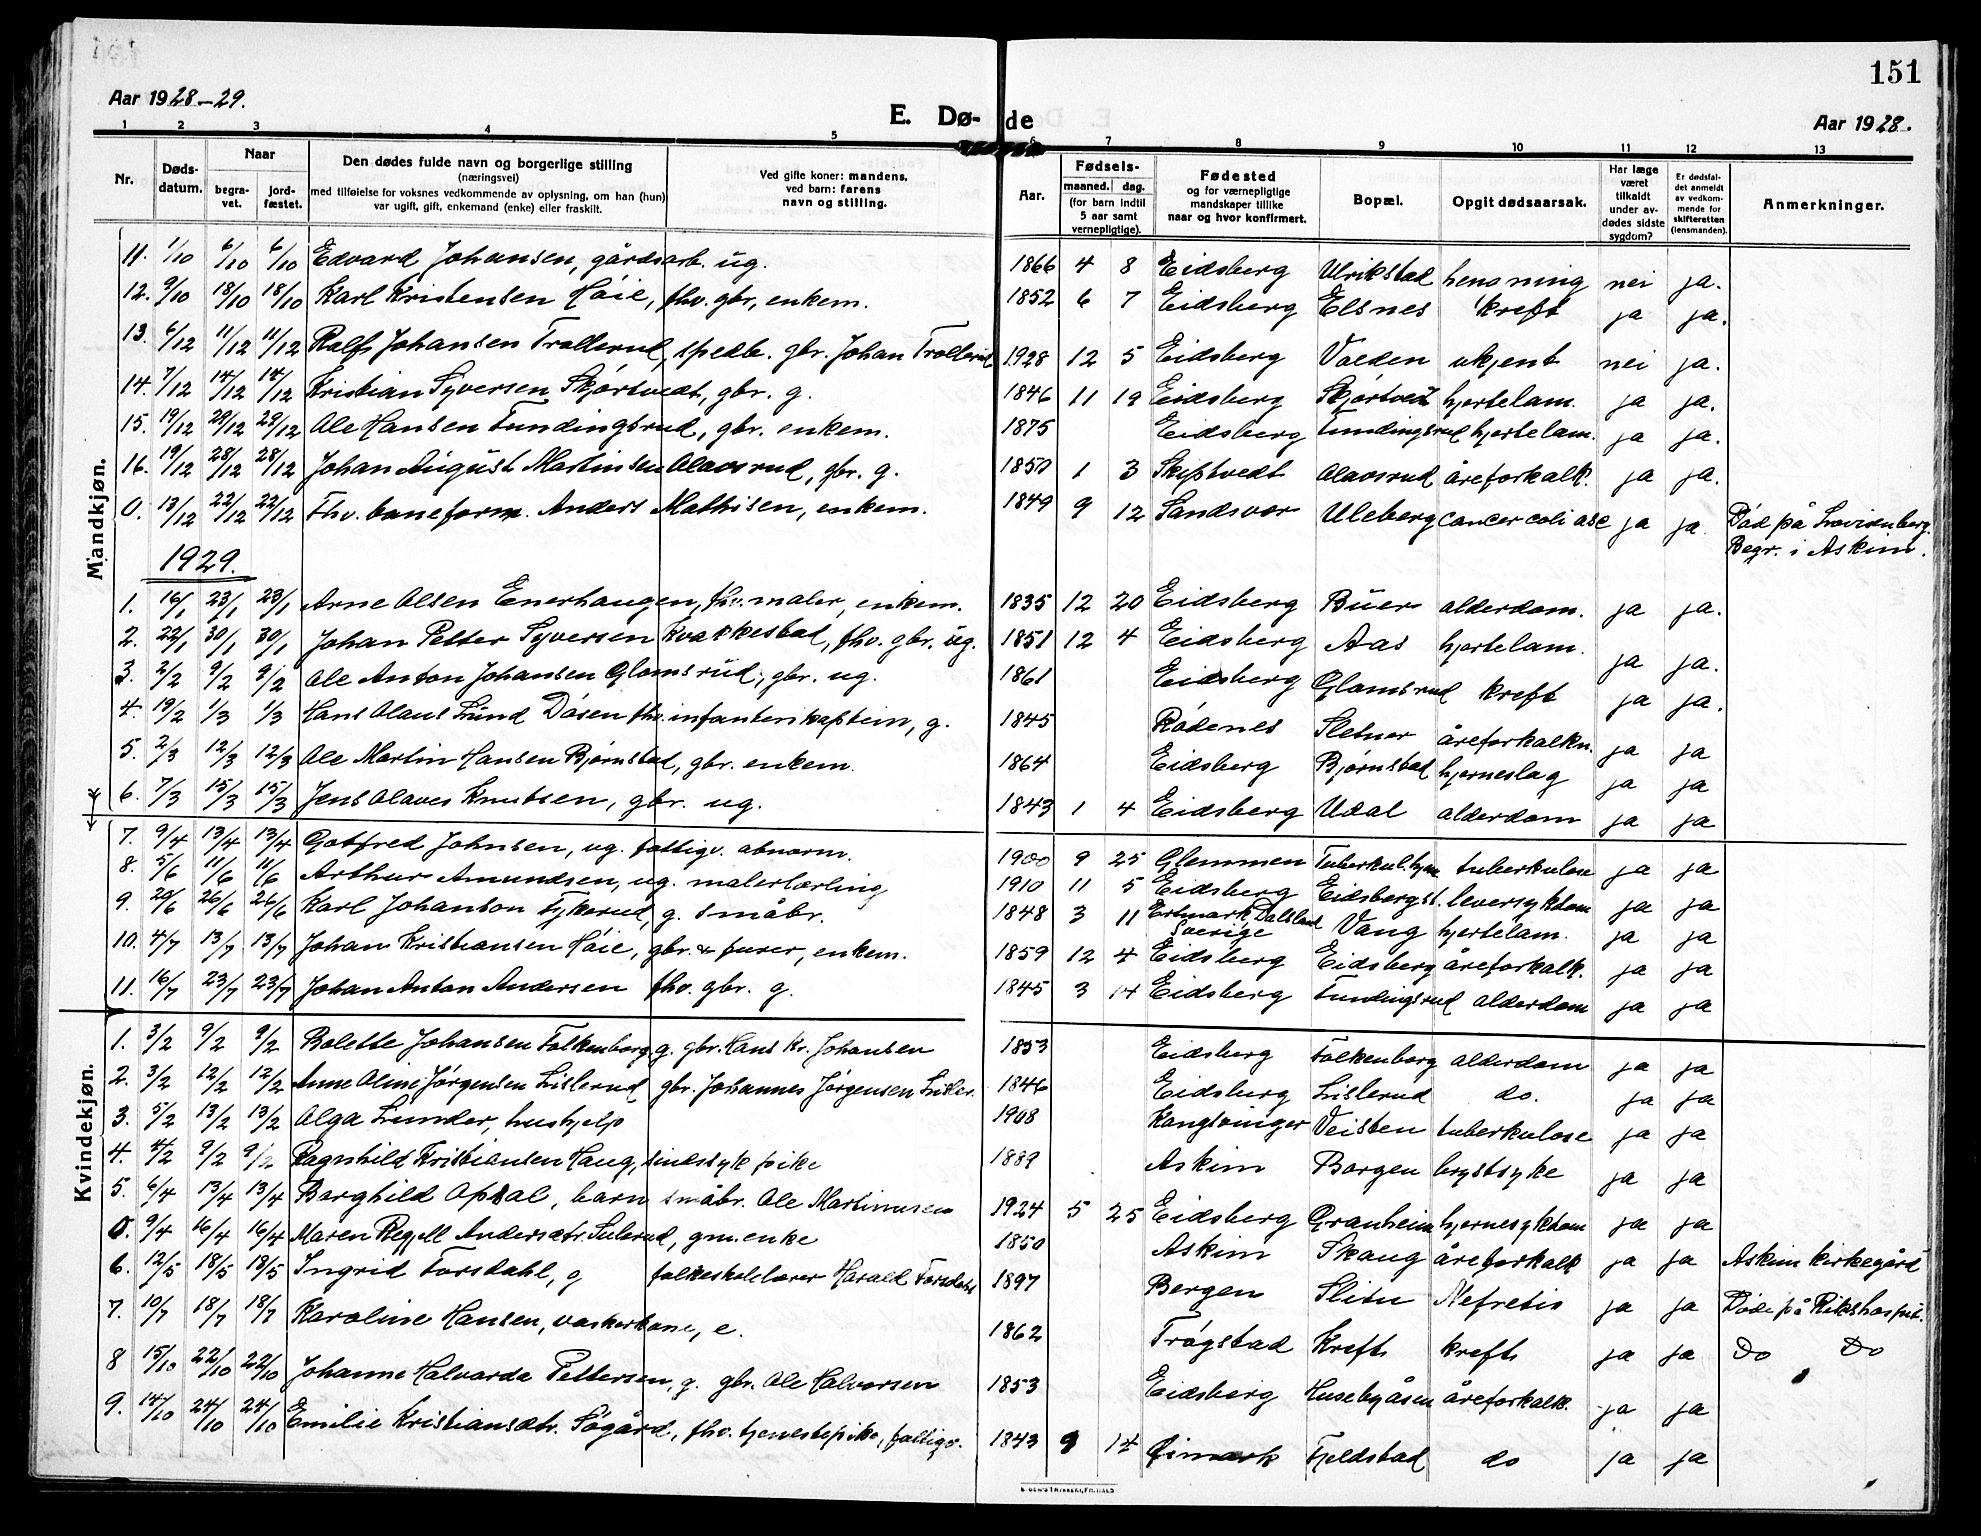 151
Aar 1928-29.
E. Dø-de
Aar 1928.
1 2 3 4 5 6 7 8 9 10 11 12 13
Nr.
Døds-datum.
Naar
begra-vet.
jord-fæstet.
Den dødes fulde navn og borgerlige stilling
(næringsvei)
med tilføielse for voksnes vedkommende av oplysning, om han (hun)
var ugift, gift, enkemand (enke) eller fraskilt.
Ved gifte koner: mandens,
ved barn: farens
navn og stilling.
Aar.
Fødsels-
maaned. dag.
(for barn indtil
5 aar samt
vernepligtige).
Fødested
og for værnepligtige
mandskaper tillike
naar og hvor konfirmert.
Bopæl.
Opgit dødsaarsak.
Har læge
været
tilkaldt
under av-
dødes sidste
sygdom?
Er dødsfal-
det anmeldt
av vedkom-
mende for
skifteretten
(lensmanden).
Anmerkninger.
Mandkjøn.
11. 1/10 6/10 6/10 Edvard Johansen, gårdsarb. ug. 1866 4 8 Eidsberg Ulrikstad hengning nei ja.
12. 9/10 18/10 18/10 Karl Kristensen Høie, fhv. gbr, enkem. 1852 6 7 Eidsberg Elsnes kreft ja ja.
13. 6/12 11/12 11/12 Ralf Johansen Trollerud, spedb. gbr. Johan Trollerud 1928 12 5 Eidsberg Voeden ukjent nei ja.
14. 7/12 14/12 14/12 Kristian Syversen Skjørtvedt, gbr. g. 1846 11 19 Eidsberg Skjørtvedt hjertelam. ja ja.
15. 19/12 29/12 29/12 Ole Hansen Fundingsrud, gbr. enkem. 1875 Eidsberg Fundingsrud hjertelam. ja ja.
16. 19/12 28/12 28/12 Johan August Martinsen Olavsrud, gbr. g. 1850 1 3 Skiptvedt Olavsrud åreforkalk. ja ja.
0. 13/12 22/12 22/12 Fhv. baneform. Anders Mathisen, enkem. 1849 9 12 Sandsvær Uleberg cancer coli asc ja ja. Død på Lovisenberg.
Begr. i Askim.
1929.
1. 16/1 23/1 23/1 Arne Olsen Enerhaugen, fhv. maler, enkem. 1835 12 20 Eidsberg Buer alderdom. ja ja.
2. 22/1 30/1 30/1 Johan Petter Syversen Kvakkestad, fhv. gbr. ug. 1851 12 4 Eidsberg Aas hjertelam. ja ja.
3. 2/2 9/2 9/2 Ole Anton Johansen Glomsrud, gbr. ug. 1861 Eidsberg Glomsrud kreft ja ja.
4. 19/2 1/3 1/3 Hans Olaus Lund Døsen fhv. infanterikaptein, g. 1845 Rødenes Sletner åreforkalkn. ja ja
5. 2/3 12/3 12/3 Ole Martin Hansen Bjørnstad, gbr. enkem. 1864 Eidsberg Bjørnstad hjerneslag ja ja
6. 7/3 15/3 15/3 Jens Olaves Knutsen, gbr. ug. 1843 1 4 Eidsberg Udal alderdom ja ja
7. 9/4 13/4 13/4 Gotfred Johnsen, ug. fattigv. abnorm. 1900 9 25 Glemmen Tuberkul.hjem tuberkulose ja ja
8. 5/6 11/6 11/6 Arthur Amundsen, ug. malerlærling 1910 11 5 Eidsberg Eidsberg st. leversykdom ja ja
9. 20/6 26/6 26/6 Karl Johanson Fykerud, g. småbr. 1848 3 11 Dalsland Sverige Vang hjertelam. ja ja
10. 4/7 13/7 13/7 Johan Kristiansen Høie, gbr. & furer, enkem. 1859 12 4 Eidsberg Eidsberg åreforkalk. ja ja
11. 16/7 23/7 23/7 Johan Anton Andersen fhv. gbr. g. 1845 3 14 Eidsberg Fundingsrud alderdom ja ja
Kvindekjøn.
1. 3/2 9/2 9/2 Bolette Johansen Falkenborg, g. gbr. Hans Kr. Johansen 1853 Eidsberg Falkenborg alderdom ja ja
2. 3/2 12/2 12/2 Anne Oline Jørgensen Lislerud gbr. Johannes Jørgensen Lisler. 1846 Eidsberg Lislerud do. ja ja
3. 5/2 13/2 13/2 Olga Lunder, hushjelp 1908 Kongsvinger Veisten tuberkulose ja ja
4. 4/2 9/2 9/2 Ragnhild Kristiansen Haug, sindssyk pike 1889 Askim Borgen brystsyke ja ja
5. 6/4 13/4 13/4 Borghild Opsal, barn småbr. Ole Martinusen 1924 5 25 Eidsberg Granheim hjernesykdom ja ja
0. 9/4 16/4 16/4 Maren Regell Andersdtr. Sulerud, gm. enke 1850 Askim Skaug åreforkalk ja ja Askim kirkegård
6. 12/5 18/5 18/5 Ingrid Forsdahl, g folkeskolelærer Harald Forsdahl 1897 Bergen Slitu Nefretis ja ja Døde på Rikshospit.
7. 10/7 18/7 18/7 Karoline Hansen, vaskekone, e. 1862 Trøgstad Krefts krefts ja ja Do Do
8 15/10 22/10 22/10 Johanne Halvarda Pettersen, g. gbr. Ole Halvorsen 1853 Eidsberg Husebyåsen åreforkalk. ja ja
9. 14/10 24/10 24/10 Emilie Kristiansdtr. Søgård, fhv. tjenestepike, fattigv. 1843 9 14 Fjeldstad do ja ja